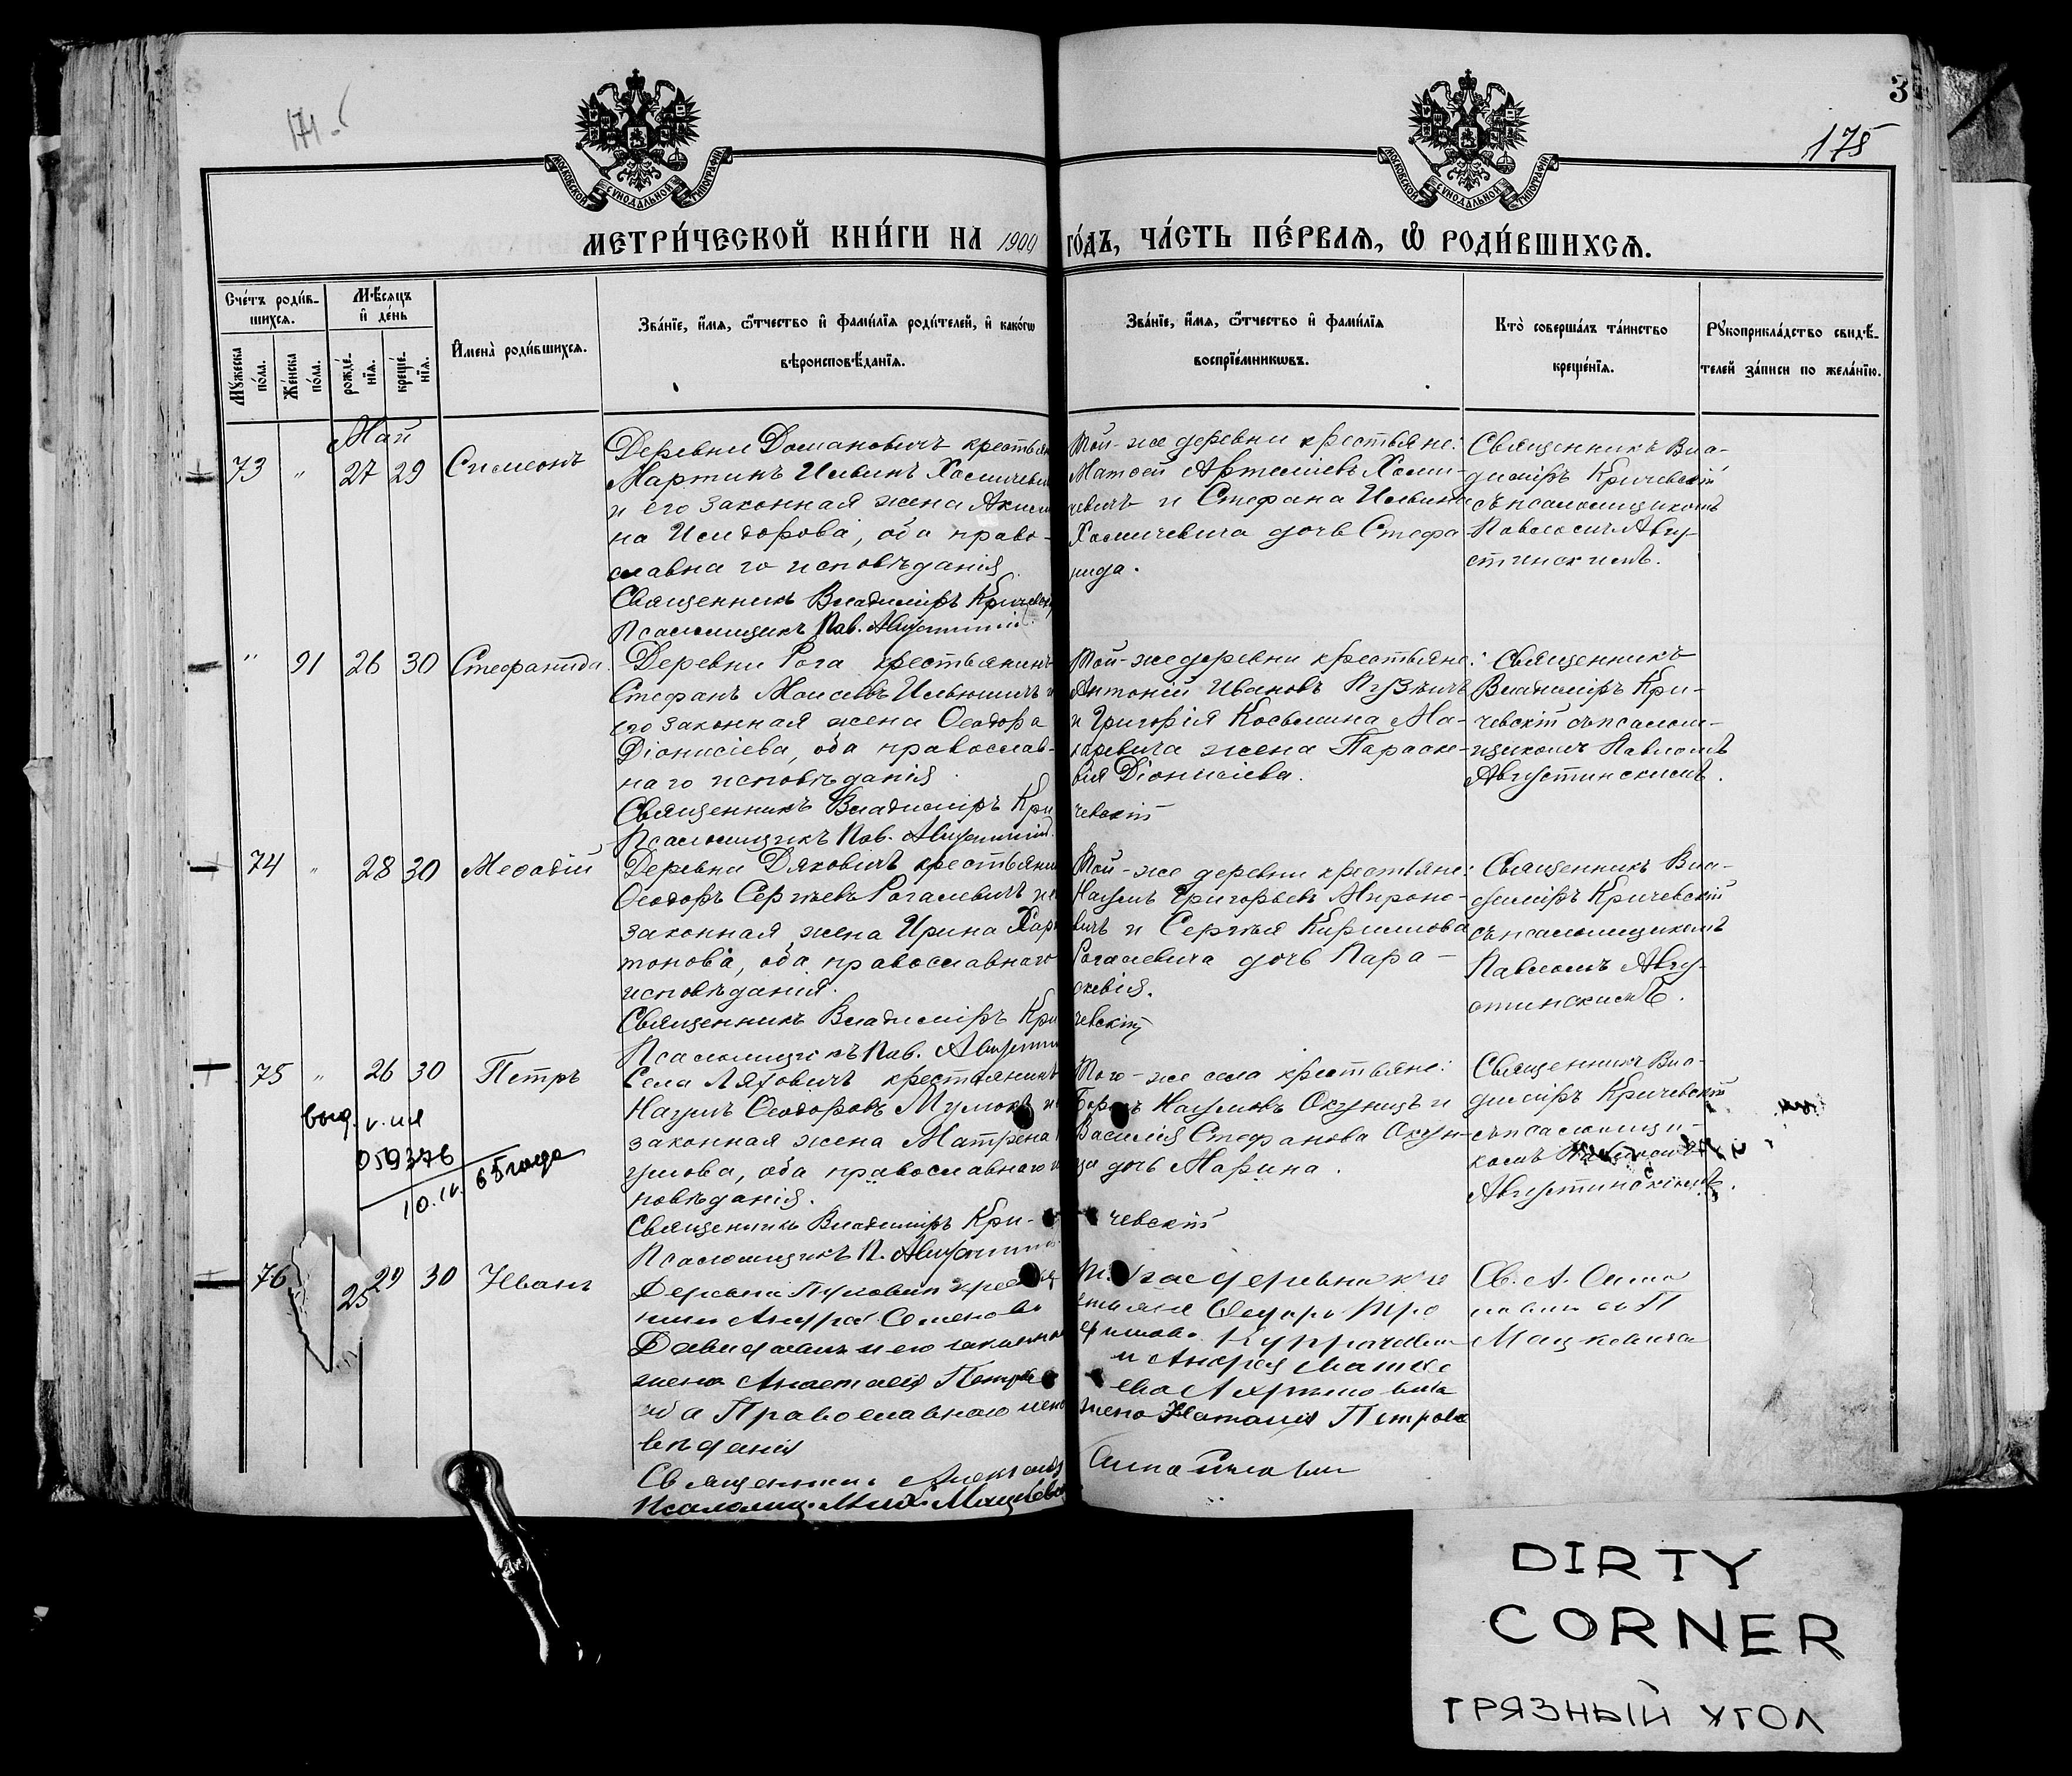 171
3
175
МОСКОВСКОЙ СѴНОДАЛЬНОЙ ТИПОГРАФІИ
МОСКОВСКОЙ СѴНОДАЛЬНОЙ ТИПОГРАФІИ
МЕТРИ́ЧЕСКОЙ КНИ́ГИ НА 1900 ГО́ДЪ, ЧА́СТЬ ПЕ́РВАЯ, Ѽ РОДИ́ВШИХСЯ.
Сче́тъ роди́в-
шихся.
Мѣ́сяцъ
и҆ де́нь
Мꙋ́жеска
по́ла.
Же́нска
по́ла.
рожде́-
нїя.
креще́-
нїя.
И҆мена̀ роди́вшихся.
Зва́нїе, и҆́мя, ѻ҆́тчество и҆ фами́лїя роди́телей, и҆ како́гѡ
вѣроисповѣ́данїя.
Зва́нїе, и҆́мя, ѻ҆́тчество и҆ фами́лїя
воспрїе́мникѡвъ.
Кто̀ соверша́лъ та́инство
креще́нїя.
Рꙋкоприкла́дство свидѣ́-
телей за́писи по жела́нїю.
Май
73 " 27 29 Симеонъ
Деревни Доманович крестьян
Мартинъ Ильинъ Хомичевич
и его законная жена Акили
на Исидорова, оба право-
славнаго исповѣданія
Священникъ Владиміръ Кричевск
Псаломщикъ Пав. Августинскій
Той-же деревни крестьяне:
Матѳей Артеміевъ Хоми-
чевичъ и Стефана Ильина
Хомичевича дочь Стефа
нида.
Священникъ Вла-
диміръ Кричевскій
съ псаломщикомъ
Павломъ Авгу-
стинскимъ.
" 91 26 30 Стефанида
Деревни Рога крестьянинъ
Стефанъ Моисеевъ Ильюшичъ и
его законная жена Ѳеодора
Діонисіева, оба православ-
наго исповѣданія.
Священникъ Владиміръ Кри
чевскій
Псаломщикъ Пав. Августинскій
Той-же деревни крестьяне:
Антоній Ивановъ
и Григорія Косьмина Ма-
каревича жена Параске-
вія Діонисіева.
Священникъ
Владиміръ Кри-
чевскій съ псалом-
щикомъ Павломъ
Августинскимъ.
74 " 28 30 Меѳодій
Деревни Дяковичъ крестьянин
Ѳеодоръ Сергѣевъ Рогалевичъ и е
законная жена Ирина Хари
тонова, оба православнаго
исповѣданія.
Священникъ Владиміръ Кри
чевскій
Псаломщикъ Пав. Августин
Той-же деревни крестьяне:
Наумъ Григорьевъ Мироно-
вичъ и Сергѣя Кириллова
Рогалевича дочь Пара-
скевія.
Священникъ Вла-
диміръ Кричевскій
съ псаломщикомъ
Павломъ Авгу-
стинскимъ.
75 " 26 30 Петръ
выд.
059376
10.IV. 65 года
Села Ляховичъ крестьянинъ
Наумъ Ѳеодоровъ
законная жена Матрена
умова, оба православнаго и
повѣданія.
Священникъ Владиміръ Кри-
чевскій
Псаломщикъ П. Августин
Того-же села крестьяне:
Наумовъ Окуницъ и
Василія Стефанова Окун-
ца дочь Марина.
Священникъ Вла-
диміръ Кричевскій
съ псаломщи-
комъ Павломъ
Августинскимъ.
76 25 29 30 Иванъ
Деревни крестья
нин Андрей Семенов
Давидович и его законная
жена Анастасія Петрова
оба Православнаго испо
вѣданія
Священникъ Александр
Псаломщ. Мих. Мацкевич
той же деревни кре
стьяне Ѳедоръ Тро
фимов
и Андрея Матвѣ
ева
жена Наталія Петрова
Св. А.
съ П
Мацкевича
DIRTY
CORNER
ГРЯЗНЫЙ УГОЛ